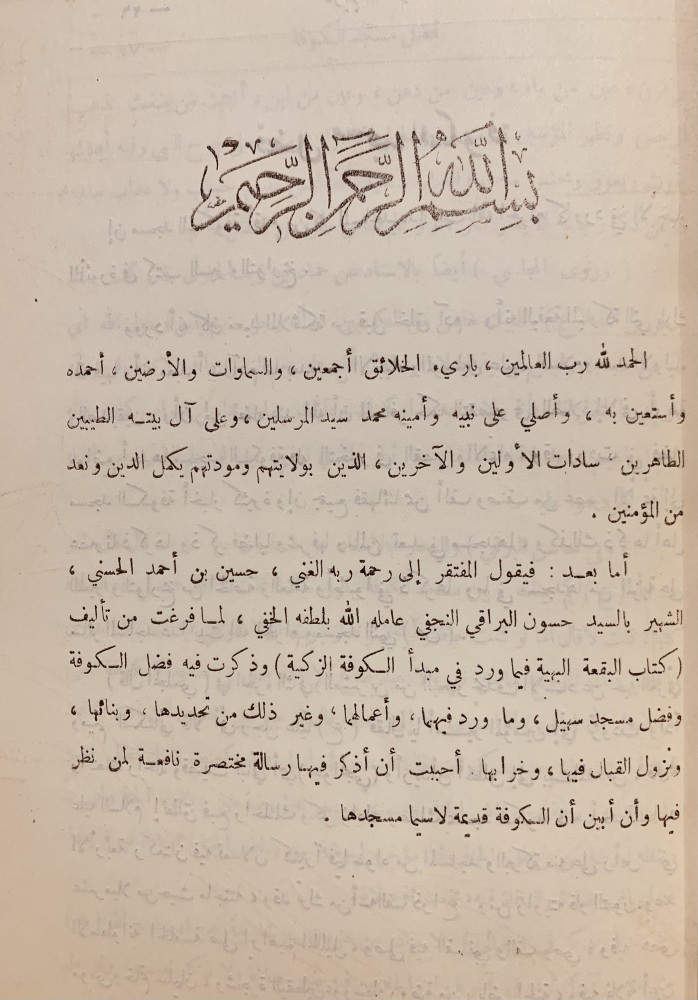 بسم الله الرحمن الرحيم
الحمد لله رب العالمين ، باريء الخلائق أجمعين ، والسماوات والأرضين ، أحمده
وأستعين به ، وأصلي على نبيه وأمينه محمد سيد المرسلين ، وعلى آل بيته الطيبين
الطاهرين سادات الأولين والآخرين ، الذين بولايتهم ومودتهم يكمل الدين ونعد
من المؤمنين .
أما بعد : فيقول المفتقر إلى رحمة ربه الغني ، حسين بن أحمد الحسني ،
الشهير بالسيد حسون البراقي النجفي عامله الله بلطفه الخفي ، لما فرغت من تأليف
( كتاب البقعة البهية فيما ورد في مبدأ الكوفة الزكية ) وذكرت فيه فضل الكوفة
وفضل مسجد سهيل ، وما ورد فيهما ، وأعمالهما ، وغير ذلك من تحديدها ، وبنائها ،
ونزول القبائل فيها ، وخرابها . أحببت أن أذكر فيها رسالة مختصرة نافعة لمن نظر
فيها وأن أبين أن الكوفة قديمة لاسيما مسجدها .